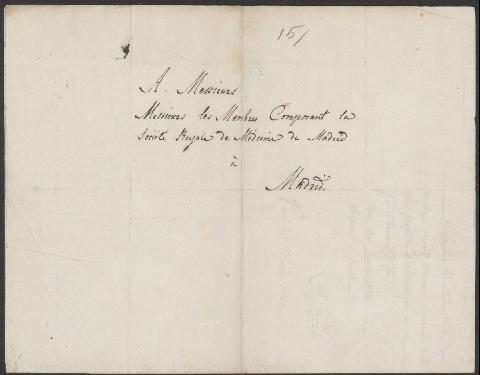 151
A. Messieurs
Messieurs les Membres Composant la
Société Royale de Médecine de Madrid
à
Madrid.